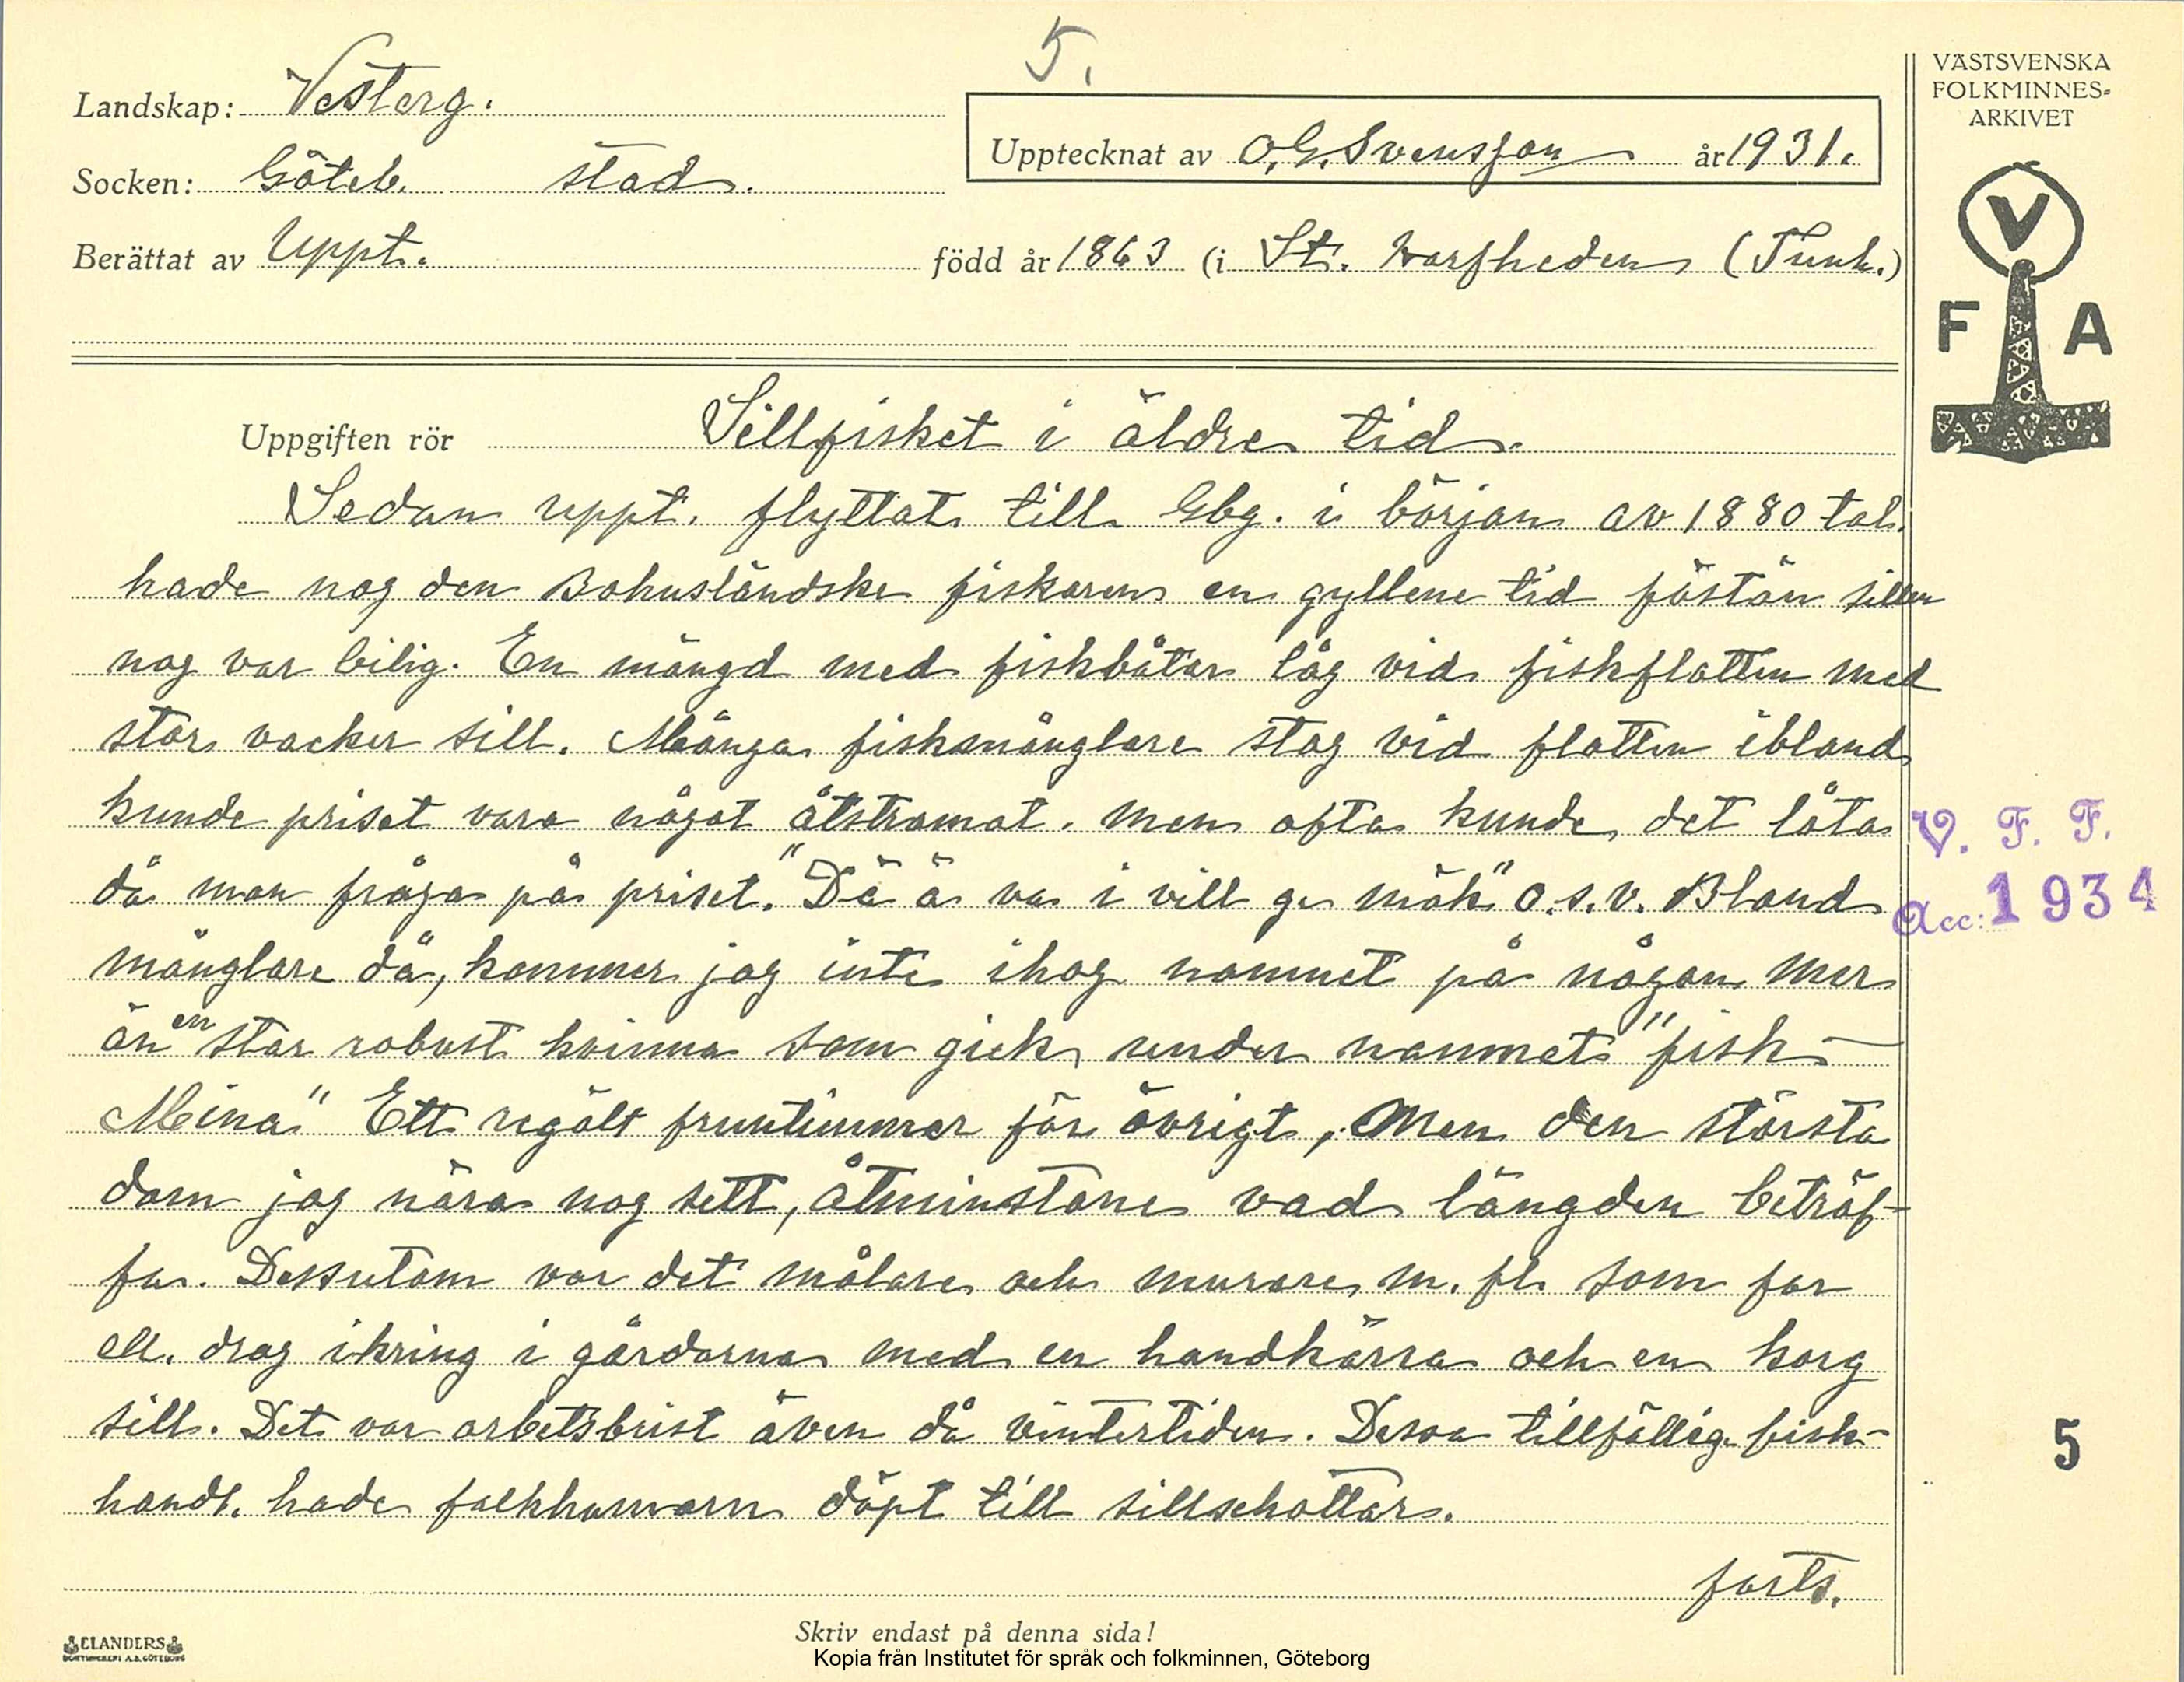 5.
Landskap: Västerg.
Socken: Göteb. stad.
Berättat av Uppt.
Upptecknat av O.G. Svensson år 1931.
född år 1863 (i St. Varfheden (Tunh.)
VÄSTSVENSKA
FOLKMINNES-
ARKIVET
V
F A
Uppgiften rör Sillfisket i äldre tid.
Sedan uppt. flyttat till Gbg. i början av 1880 tal.
hade nog den Bohusländske fiskaren en gyllene tid föstän sillen
nog var bilig. En mängd med fiskbåtar låg vid fiskflatten med
stor vacker sill. Många fiskmånglare stog vid flatten ibland
kunde priset vara något åtstramat. men ofta kunde det låta
då man fråga på priset. "Dä ä va i vill ge mäk" o.s.v. Bland
månglare då, kommer jag inte ihog namnet på någon mer
än en stor robust kvinna som gick under nammet "fisk-
Mina" Ett regält fruntimmer för övrigt, Men den största
dam jag nära nog sett, åtminstone vad längden beträf-
fa. Dessutom var det målare och murare m. fl. som for
ell. drog ikring i gårdarna med en handkärra och en korg
sill. Det var arbetsbrist även då vintertiden. Dessa tillfällig. fisk-
handl. hade folkhumorn döpt till sillschottar.
forts.
V. F. F.
Acc: 1934
5
Skriv endast på denna sida!
ELANDERS
BOKTRYCKERI A.B. GÖTEBORG
Kopia från Institutet för språk och folkminnen, Göteborg